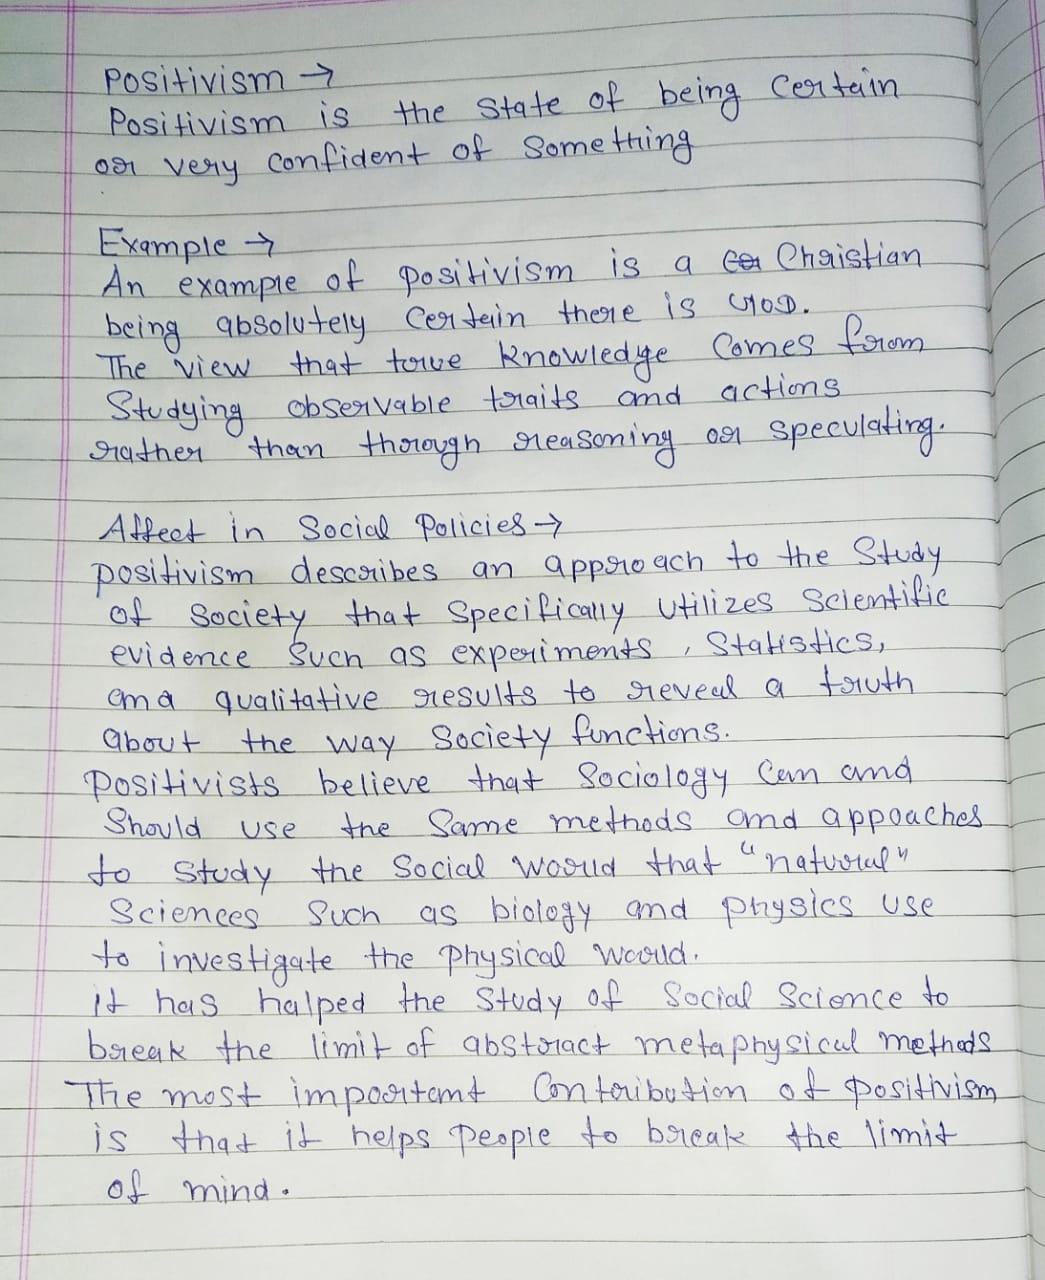 Positivism →
Positivism is the state of being certain
or very confident of something
Example →
An example of positivism is a Christian
being absolutely certain there is GOD.
The view that true knowledge comes from
studying observable traits and actions
rather than through reasoning or speculating.
Affect in Social Policies →
positivism describes an approach to the study
of society that specifically utilizes scientific
evidence such as experiments, statistics,
and qualitative results to reveal a truth
about the way society functions.
positivists believe that sociology can and
should use the same methods and appoaches
to study the social world that "natural"
sciences such as biology and physics use
to investigate the physical world.
it has helped the study of social science to
break the limit of abstract metaphysical methods
The most important contribution of positivism
is that it helps people to break the limit
of mind.